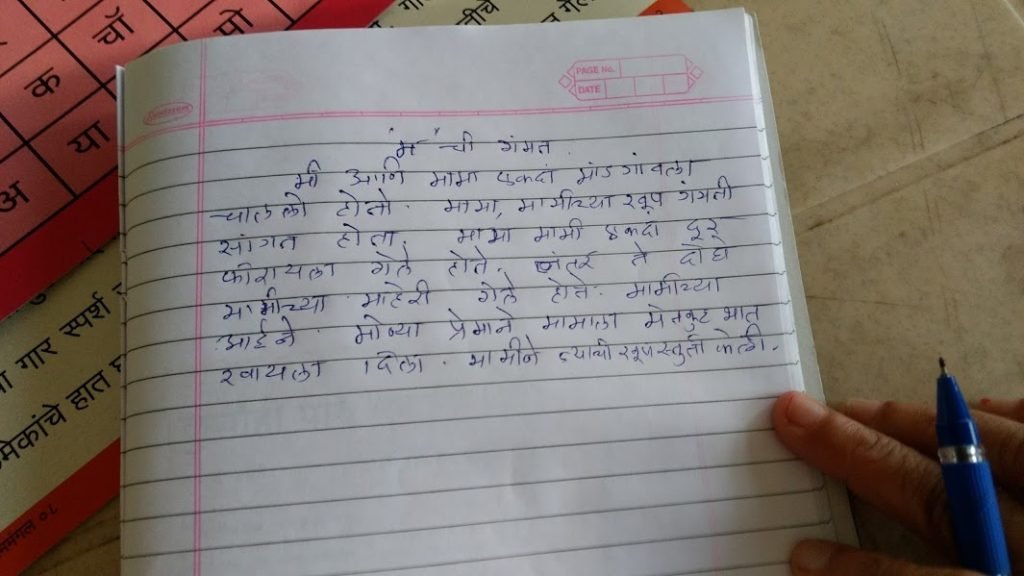 क
चौ
मो
अ
या
गार स्पर्श
मेकांचे हात
PAGE No.
DATE
"म" ची गंमत
मी आणि मामा एकदा माडगावला
चाललो होतो. मामा, मामीच्या खूप गंमती
सांगत होता. मामा मामी एकदा दूर
फीरायला गेले होते. नंतर ते दोघे
मामीच्या माहेरी गेले होते. मामीच्या
आईने मोठ्या प्रेमाने मामाला मेतकूट भात
खायला दिला. मामीने त्याची खूप स्तुती केली.